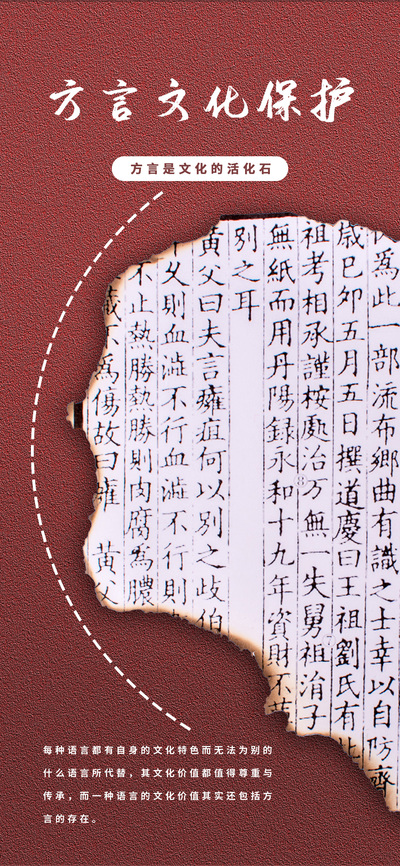 方言文化保护
方言是文化的活化石
為此一部流布鄉曲有識之士幸以自防齊
歲巳卯五月五日撰道慶曰王祖劉氏有此
祖考相承謹按處治万無一失舅祖涓子
無紙而用丹陽錄永和十九年資財不薄
別之耳
黃父曰夫言癰疽何以別之歧伯
則血澁不行血澁不行則
不止熱勝熱勝則肉腐為膿
不為傷故曰癰 黃父
每种语言都有自身的文化特色而无法为别的
什么语言所代替，其文化价值都值得尊重与
传承，而一种语言的文化价值其实还包括方
言的存在。